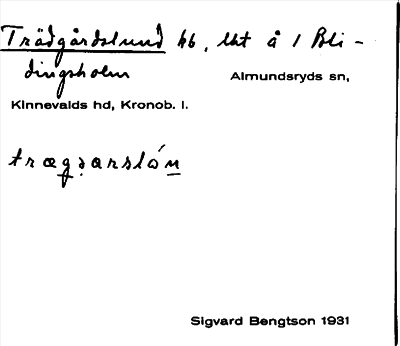 Trädgårdslund hb, lht å 1 Bli-
dingsholm Almundsryds sn,
Kinnevalds hd, Kronob. l.
Sigvard Bengtson 1931